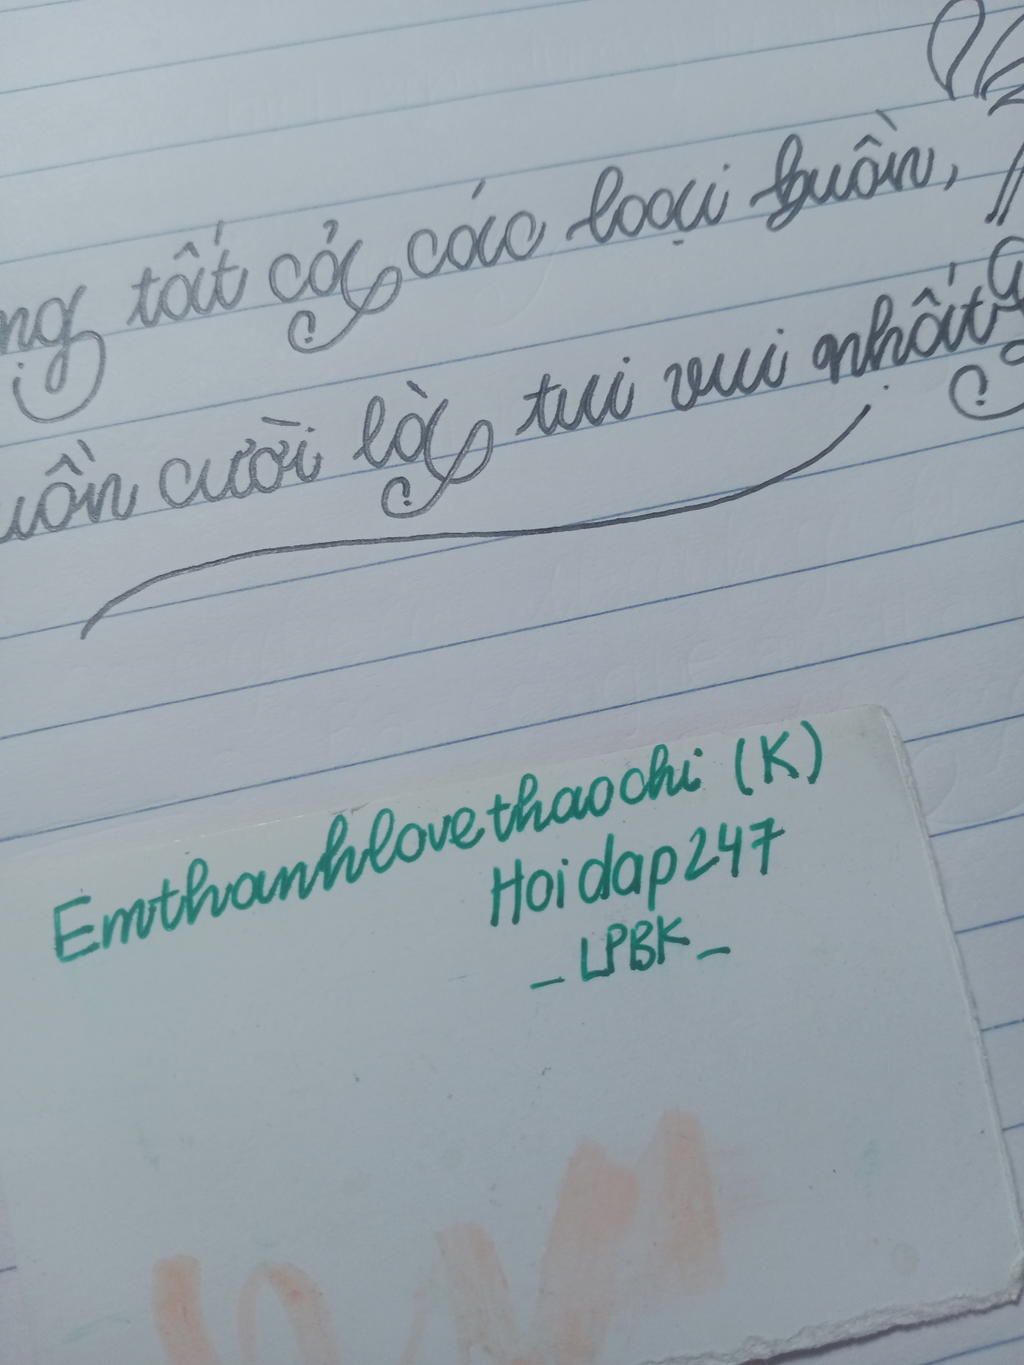 tất cả các loại buồn,
cười là tui vui nhất
Emthanhlovethaochi (K)
Hoidap247
_ LPBK _